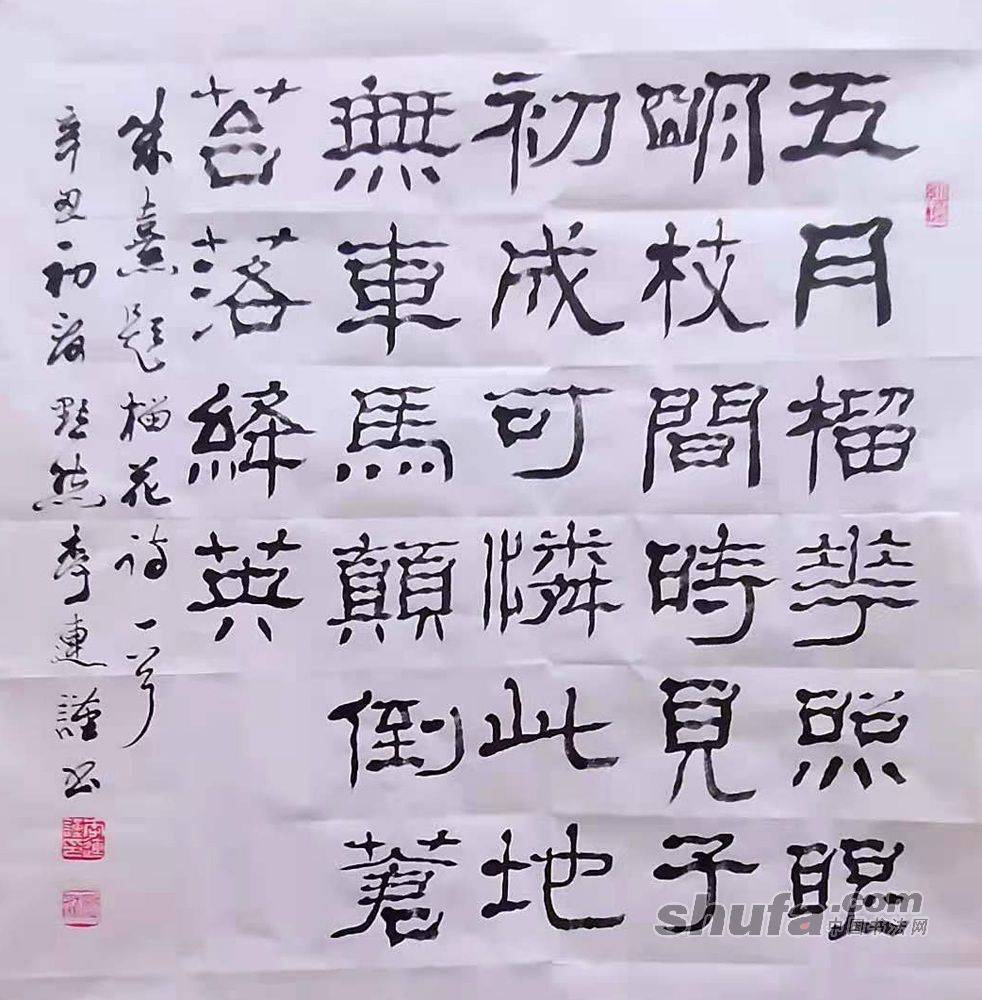 五月榴華照眼
明枝間時見子
初成可憐此地
無車馬顛倒蒼
苔落絳英
朱熹题榴花诗一首
辛丑初夏然李連謹书
shufa.com
中国书法网